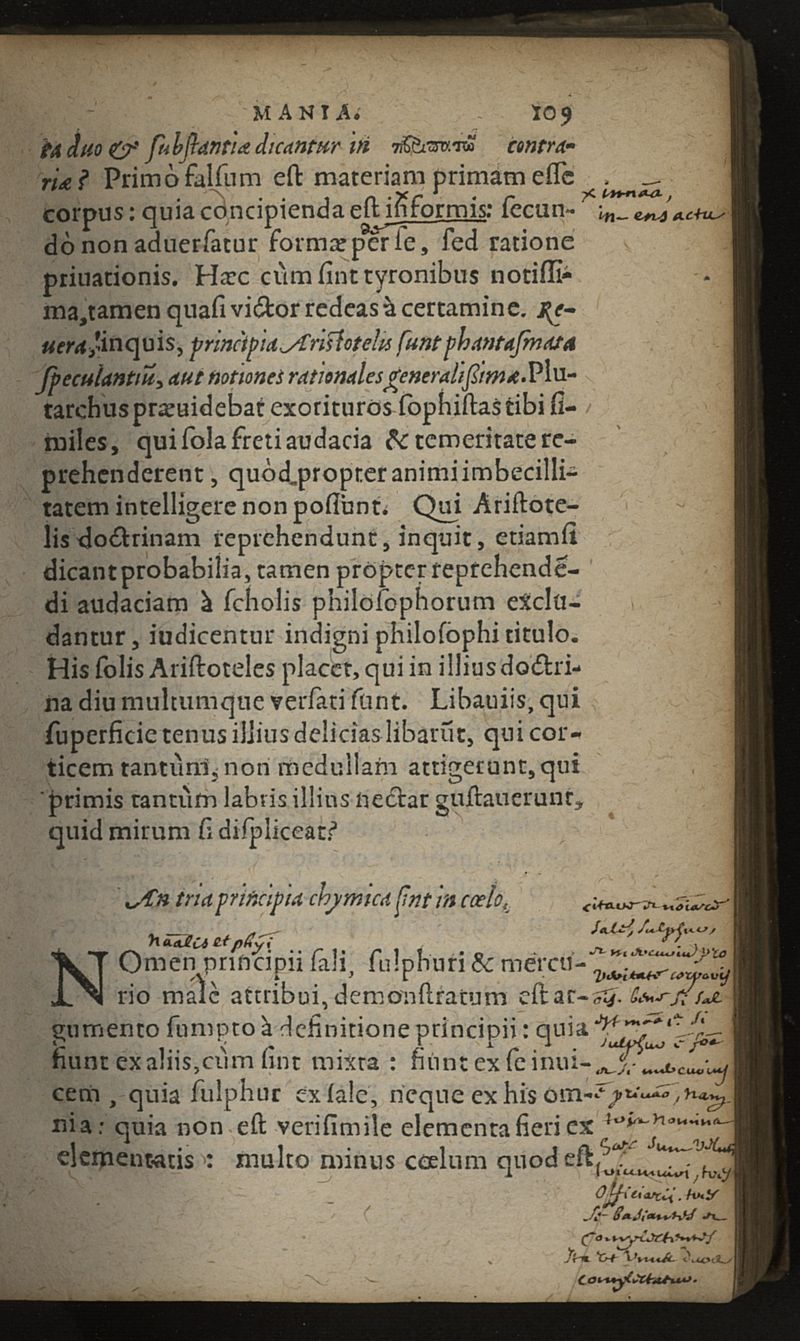 MANIA. 109
ta duo & ſubſtantiæ dicantur in contra-
riæ? Primò falſum eſt materiam primam eſſe
corpus: quia concipienda eſt informis: ſecun-
in ens actu
dò non aduerſatur formæ per ſe, ſed ratione
priuationis. Hæc cùm ſint tyronibus notiſſi-
ma, tamen quaſi victor redeas à certamine. Re-
uera, inquis, principia Ariſtotelis ſunt phantaſmata
ſpeculantiũ, aut notiones rationales generaliſſimæ. Plu-
tarchus præuidebat exorituros ſophiſtas tibi ſi-
miles, qui ſola freti audacia & temeritate re-
prehenderent, quòd propter animi imbecilli-
tatem intelligere non poſſunt. Qui Ariſtote-
lis doctrinam reprehendunt, inquit, etiamſi
dicant probabilia, tamen propter reprehendē-
di audaciam à ſcholis philoſophorum exclu-
dantur, iudicentur indigni philoſophi titulo.
His ſolis Ariſtoteles placet, qui in illius doctri-
na diu multumque verſati ſunt. Libauiis, qui
ſuperficie tenus illius delicias libarūt, qui cor-
ticem tantùm, non medullam attigerunt, qui
primis tantùm labris illius nectar guſtauerunt,
quid mirum ſi diſpliceat?
An tria principia chymica ſint in cœlo.
NOmen principii ſali, ſulphuri & mercu-
rio malè attribui, demonſtratum eſt ar-
gumento ſumpto à definitione principii: quia
fiunt ex aliis, cùm ſint mixta: fiunt ex ſe inui-
cem, quia ſulphur ex ſale, neque ex his om-
nia: quia non eſt veriſimile elementa fieri ex
elementatis: multo minus cœlum quod eſt